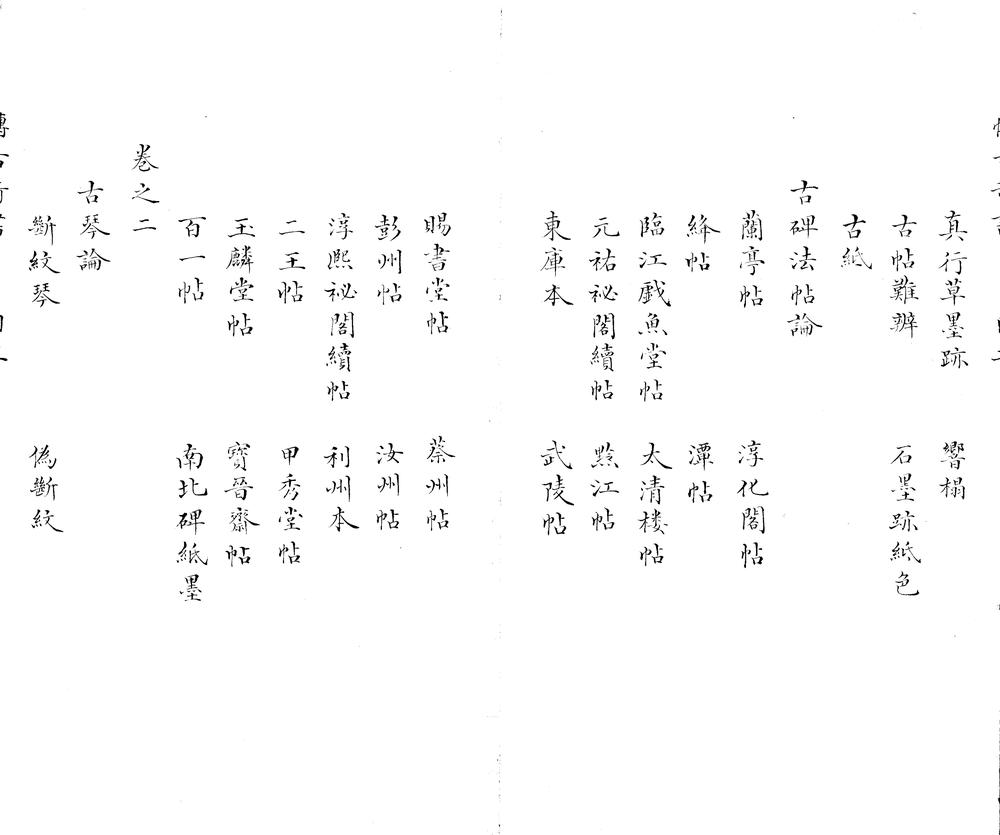 真行草墨跡　響榻
古帖難辨　石墨跡紙色
古紙
古碑法帖論
蘭亭帖　淳化閣帖
絳帖　潭帖
臨江戲魚堂帖　太清楼帖
元祐祕閣續帖　黔江帖
東庫本　武陵帖
賜書堂帖　蔡州帖
彭州帖　汝州帖
淳熙祕閣續帖　利州本
二王帖　甲秀堂帖
玉麟堂帖　寶晉齋帖
百一帖　南北碑紙墨
卷之二
古琴論
斷紋琴　偽斷紋